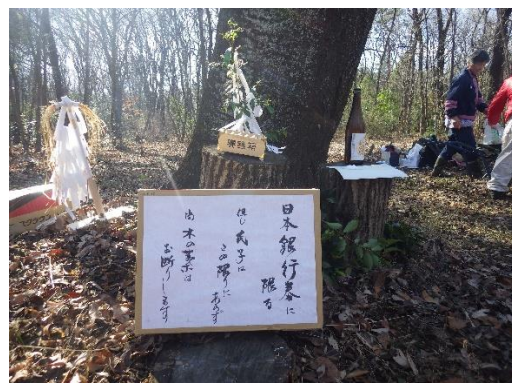 賽銭箱
日本銀行券に
限る
但し氏子は
この限りに
あらず
尚木の葉は
お断りします